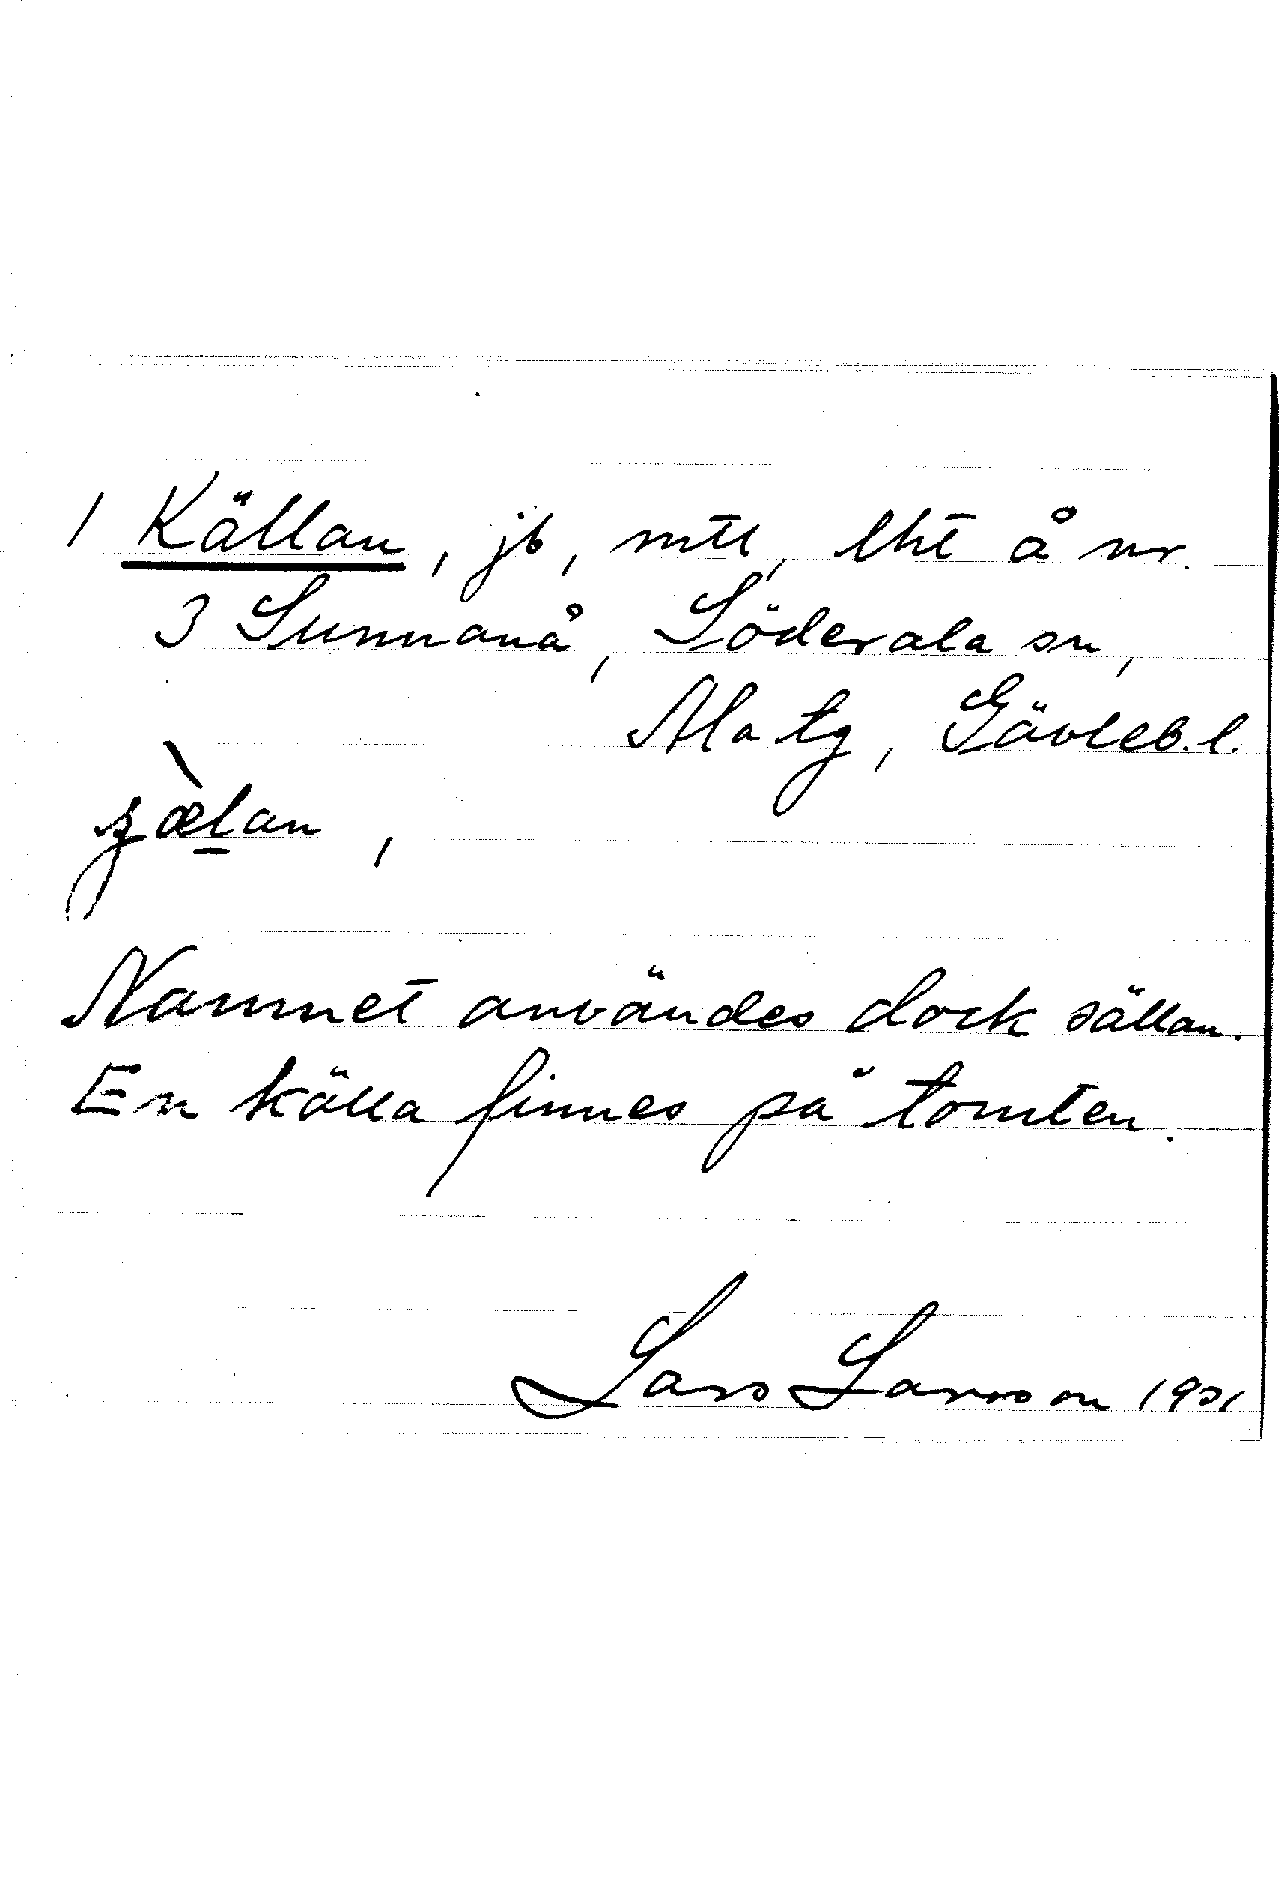 1 Källan, jb, mtl, lht å nr.
3 Sunnanå, Söderala sn,
Ala tg, Gävleb. l.
Namnet användes dock sällan.
En källa finnes på tomten.
Lars Larsson 1931